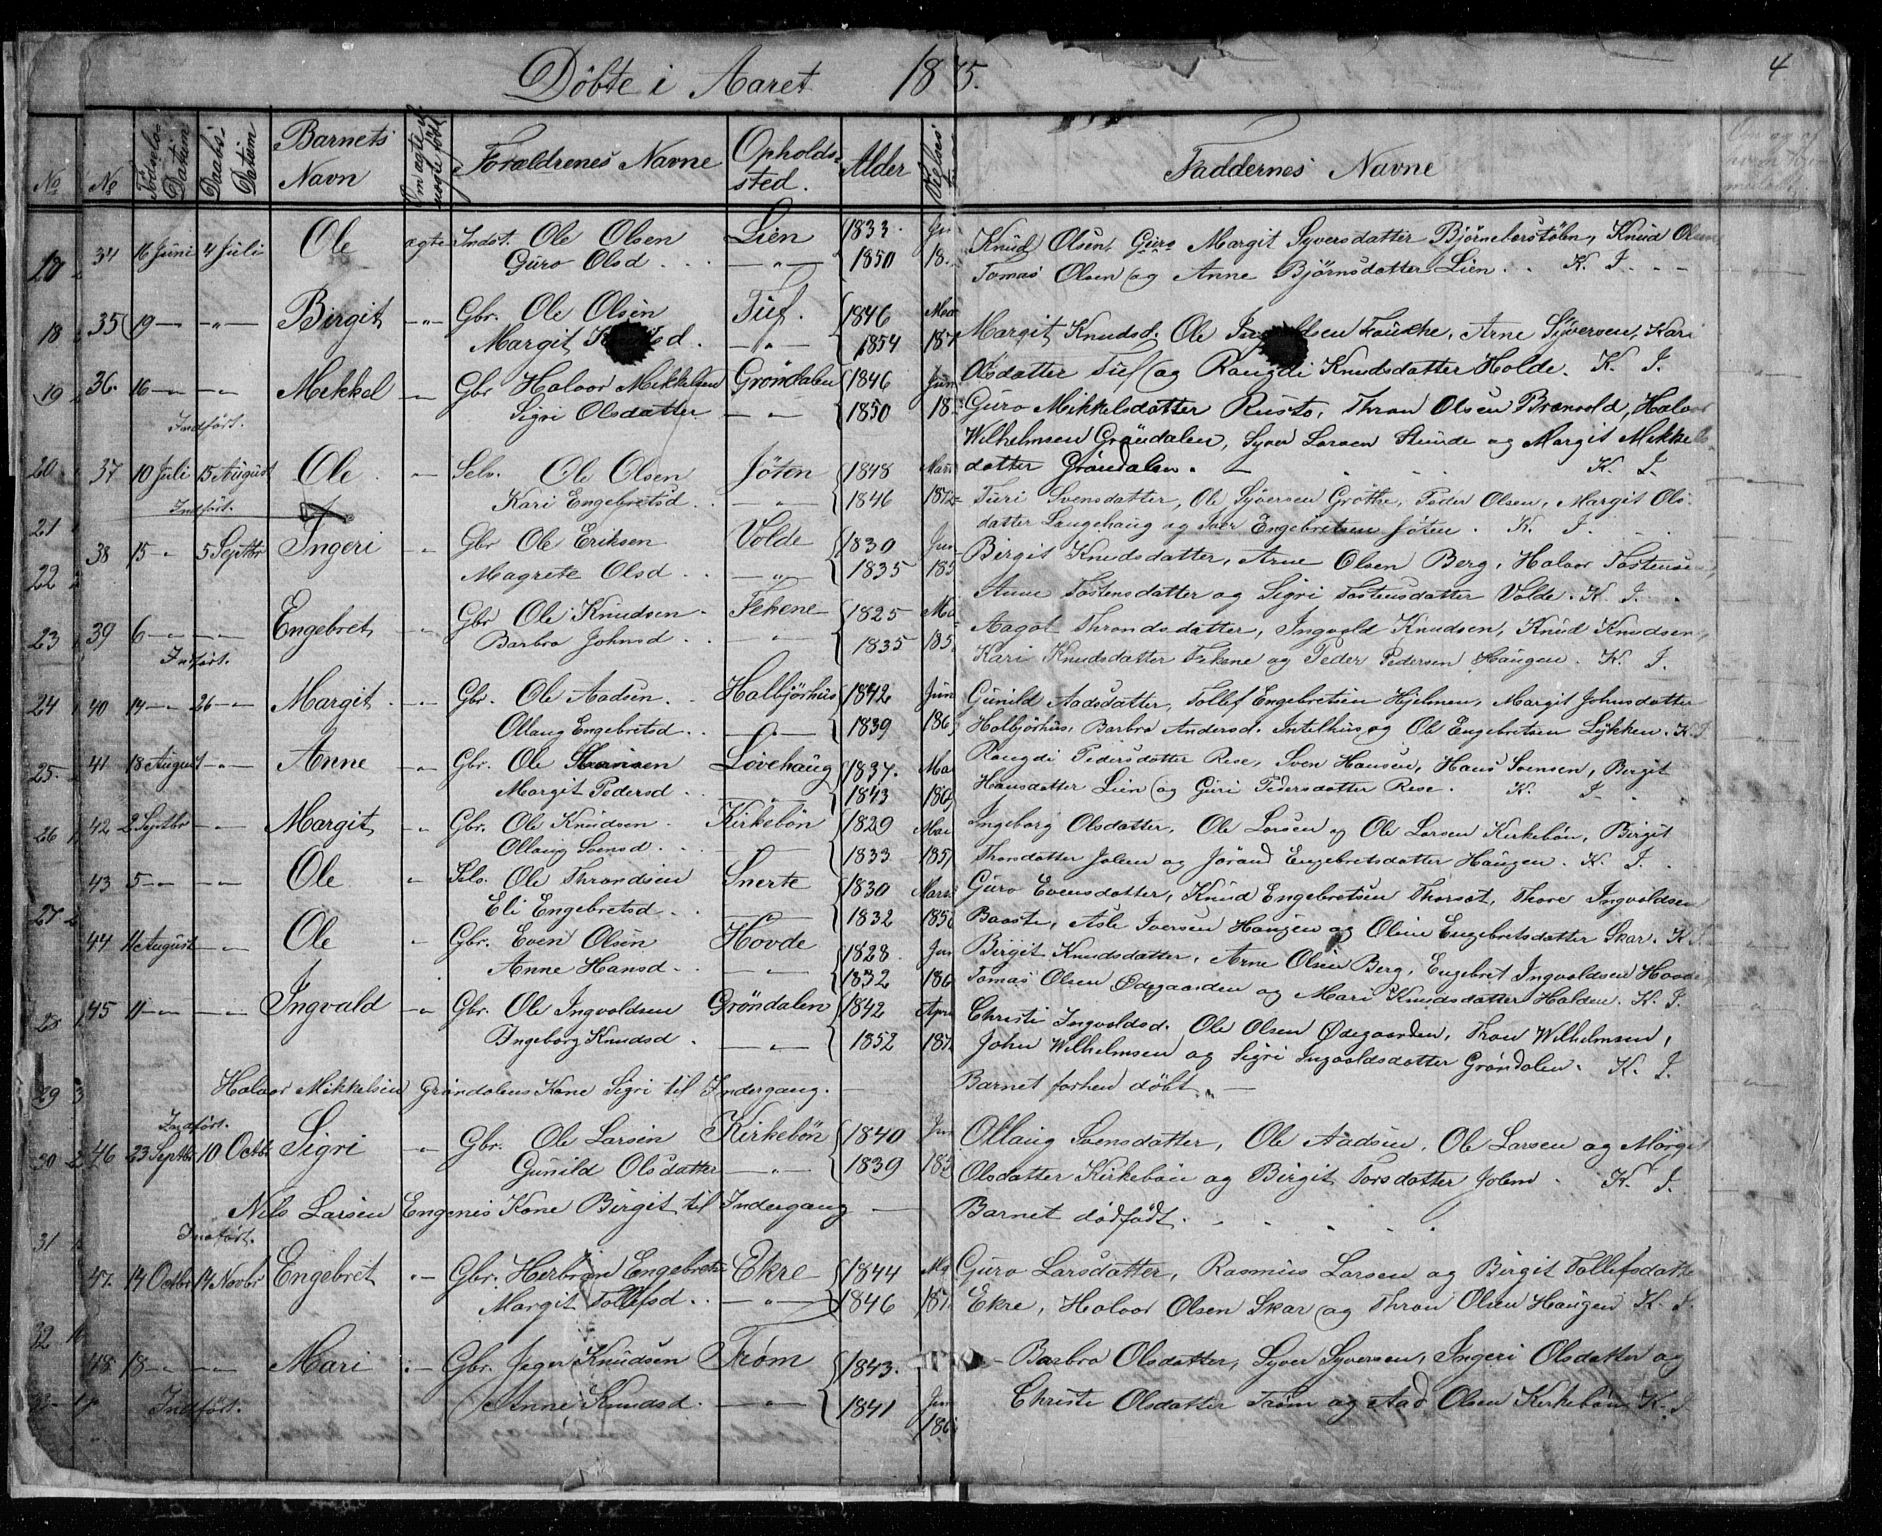 Döbte i Aaret 1875.
4
No No Födsels Datum Daabs Datum Barnets Navn Om ægte el. uægte født Forældrenes Navne Opholdssted. Alder Vielses Faddernes Navne
34 16 Juni 4 Juli Ole ægte Indst. Ole Olsen Lien 1833. Knud Olsen, Guro Margit Syversdatter Björneberstölen, Knud Olsen
Guro Olsd. 1850 18 Tomas Olsen og Anne Björnsdatter Lien. K. I.
18 35 19 — „ — Birgit — „ — Gbr. Ole Olsen Tuf. 1846 Margit Knudsd. Ole Fauske, Arne Syversen, Kari
Margit d. — „ — 1854 187 Olsdatter Tuf og Rangdi Knudsdatter Holde. K. I.
19 36. 16 — „ — Mekkel — „ — Gbr Halvor Mikkelsen Gröndalen 1846 Jun Guro Mikkelsdatter Rusto, Thron Olsen Brænvold, Halvor
Indfört. Sigri Olsdatter — „ — 1850 18 Wilhelmsen Gröndalen, Syver Larsen Stunde og Margit Mekkels
datter Gröndalen. — K. I.
20 37 10 Juli 15 August Ole — „ — Selv. Ole Olsen Jöten 1848 Svensdatter, Ole Syversen Gröthe, Peder Olsen, Margit Ols
Indfört. Kari Engebretsd. — „ — 1846 1872 datter Langehaug og Iver Engebretsen Jöten. K. I.
21 38 15 — „ 5 Septbr Ingeri — „ — Gbr Ole Eriksen Volde 1830 Jun Birgit Knudsdatter, Arne Olsen Berg, Halvor Tostensen,
22 Magrete Olsd. — „ — 1835 185 Anne Tostensdatter og Sigri Tostensdatter Volde. K. I.
23 39 6 — „ — Engebret — „ — Gbr Ole Knudsen Tekene 1825 Aagot Throndsdatter, Ingvald Knudsen, Knud Knudsen
Indfört. Barbro Johnsd. — „ — 1835 185 Kari Knudsdatter Tekene og Peder Pedersen Haugen. K. I.
24 40 14 — „ 26 — „ — Margit — „ — Gbr. Ole Aadsen. Halbjörhus 1842 Jun Gunild Aadsdatter, Tollef Engebretsen Hjelmen, Margit Johnsdatter
Ollaug Engebretsd. — „ — 1839 186 Holbjörhus, Barbro Andersd. Intelhus og Ole Engebretsen Lykken. K. I.
25. 41 18 August — „ — Anne — „ — Gbr. Ole Hansen Lövehaug 1837. Ma Rangdi Pedersdatter Rese, Sven Hansen, Hans Svensen, Birgit
Margit Pedersd. — „ — 1843 Hansdatter Lien og Guri Pedersdatter Rese. K. I.
26 42 2 Septbr — „ — Margit — „ — Gbr. Ole Knudsen Kirkebön 1829 Mai Ingeborg Olsdatter, Ole Larsen og Ole Larsen Kirkebön, Birgit
Ollaug Svensd. 1833 185 Thorsdatter Jolem og Jörand Engebretsdatter Haugen. K. I.
43 5 — „ — Ole „ Selv. Ole Throndsen Snerte 1830 Guro Evensdatter, Knud Engebretsen Thorset, Thore Ingvoldsen
27 Eli Engebretsd. — „ — 1832 185 Baaste, Asle Iversen Haugen og Oline Engebretsdatter Skar. K. I.
44 11 August — „ — Ole „ Gbr. Even Olsen Hovde 1828 Jun Birgit Knudsdatter, Arne Olsen Berg, Engebret Ingvoldsen Hovde
Anne Hansd. — „ — 1832 186 Tomas Olsen Ødegaarden og Mari Knudsdatter Halden. K. I.
28 45 11 — „ — Ingvald — „ — Gbr. Ole Ingvoldsen Gröndalen 1842 Apri Christi Ingvoldsd. Ole Olsen Ødegaarden, Tron Wilhelmsen,
Ingeborg Knudsd. — „ — 1852 187 John Wilhelmsen og Sigri Ingvoldsdatter Gröndalen. K. I.
29 Halvor Mikkelsen Gröndalens Kone Sigri til Indergang. — Barnet forhen döbt. —
Indfört.
30 46 23 Septbr 10 Octbr Sigri — „ — Gbr. Ole Larsen Kirkebön 1840 Jun Ollaug Svensdatter, Ole Aadsen, Ole Larsen og Margit
Gunild Olsdatter — „ — 1839 Olsdatter Kirkebön og Birgit Torsdatter Jolem. K. I.
Nils Larsen Engenes Kone Birgit til Indergang — Barnet dödfödt.
31 Indfört.
47. 14 Octbr 14 Novbr Engebret „ — Gbr. Herbran Engebrets Ekre 1844 Guro Larsdatter, Rasmus Larsen og Birgit Tollefsdatte
Margit Tollefsd. — „ — 1846 187 Ekre, Halvor Olsen Skar og Thron Olsen Haugen K. I.
32 48 18 — „ — Mari „ — Gbr. Knudsen Tröm 1843. Barbro Olsdatter, Syver Syversen, Ingeri Olsdatter og
33 Indfört. Anne Knudsd. — „ — 1841 Jun 186 Christi Olsdatter Tröm og Aad Olsen Kirkebön K. I.